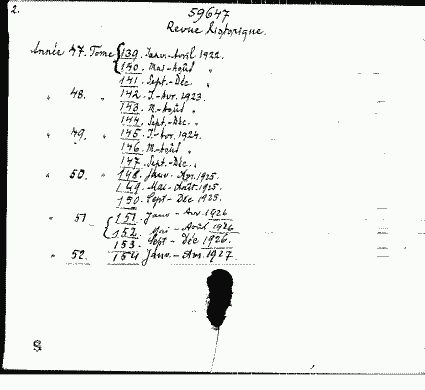 2.
59647
Revue historique.
Année 47. Tome 139. Janv.-Avril 1922.
140. Mai-Août "
141. Sept.-Déc. "
" 48. " 142. J.-Avr. 1923.
143. M.-Août "
144. Sept.-Déc. "
" 49. " 145. J.-Avr. 1924.
146. M.-Août "
147. Sept.-Déc. "
" 50. " 148. Janv.-Avr. 1925.
149. Mai-Août 1925.
150. Sept-Déc 1925.
" 51 151. Janv-Avr. 1926
152. Mai-Août 1926
153. Sept-Déc 1926.
" 52. 154 Janv.-Avr. 1927
S